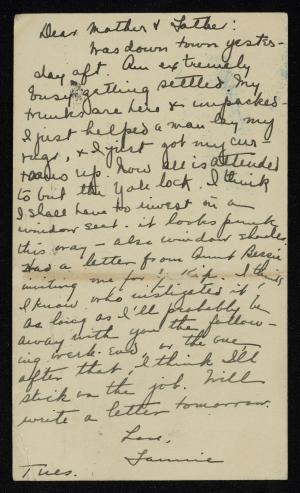 Dear Mother & Father:
Was down town yester-
day aft. Am extremely
busy getting settled. My
trunks are here & unpacked -
I just helped a man lay my
rugs, & I just got my cur-
tains up. Now all is attended
to but the Yale lock. I think
I shall have to invest in a
window seat. it looks punk
this way - also window shades.
Had a letter from Aunt Bessie
inviting me for I think
I know who instigated it,
as long as I'll probably be
away with you the follow-
ing week-end or the one
after that, I think I'll
stick on the job. Will
write a letter tomorrow.
Love,
Fannie
Tues.